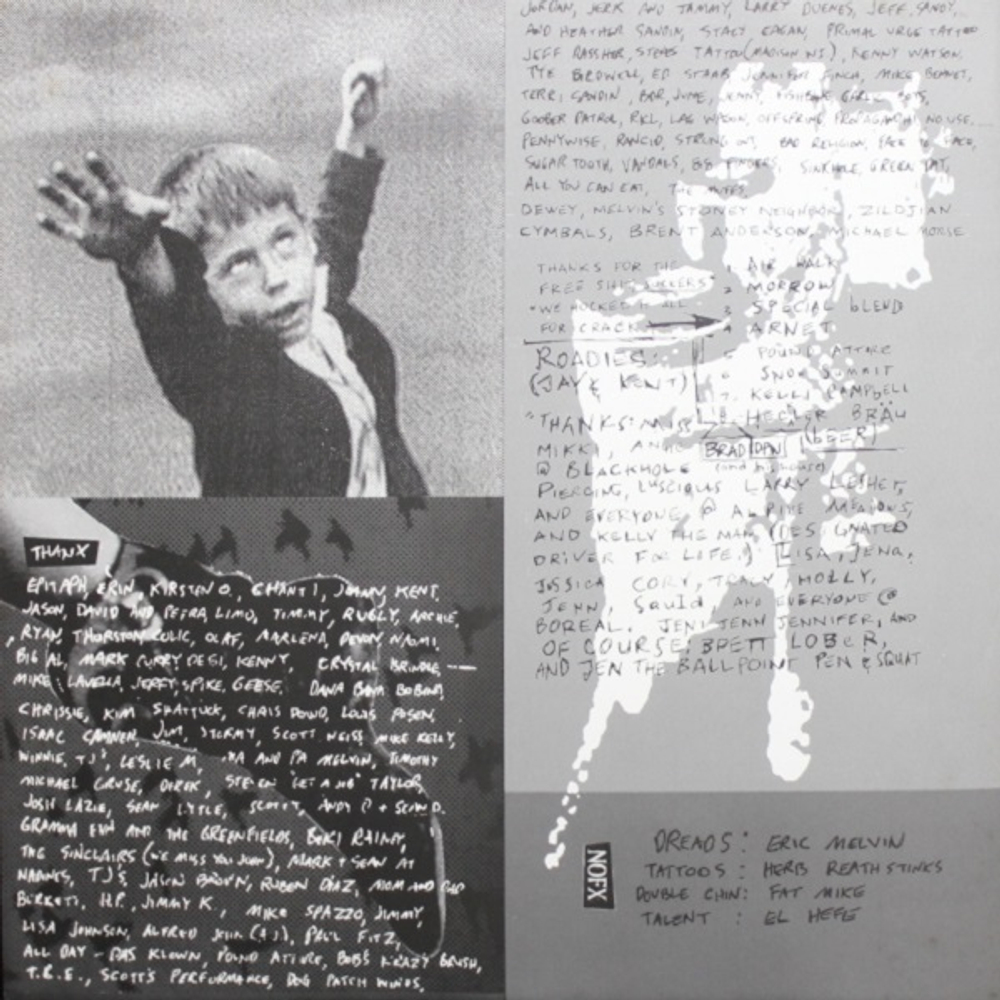 THANX
EPITAPH, ERIN, KIRSTEN O., CHANTI, JOHNNY KENT,
JASON, DAVID AND PETRA, LIMO, TIMMY, RUGLY, ARCHIE,
RYAN, THORSTEN, OLAF, MARLENA, DEVON, NAOMI
BIG AL, MARK CURRY KENNY, CRYSTAL BRINDLE
MIKE LAVELLA, JERRY, SPIKE, GEESE, DANA
CHRISSIE, KIM SHATTUCK, CHRIS DOWD, LOUIS POSEN,
ISAAC JIM, STORMY, SCOTT WEISS, MIKE KELLY,
WINNIE, TJ, LESLIE M, MA AND PA MELVIN, TIMOTHY
MICHAEL CRUSE, DEREK, STEVEN TAYLOR,
JOSH LAZIE, SEAN LYTLE, SCOTT, ANDY P + SEAN D.
GRAMMA EVH AND THE GREENFIELDS, RAINY,
THE SINCLAIRS (WE MISS YOU), MARK + SEAN AT
TJ'S, JASON BROWN, RUBEN DIAZ, MOM AND DAD
BURKETT, H.P., JIMMY K., MIKE SPAZZO, JIMMY,
LISA JOHNSON, ALFRED JOHN (AJ), PAUL FITZ,
ALL DAY - DAS KLOWN, POUND ATTIRE, BOB'S KRAZY BRUSH,
T.R.E., SCOTT'S PERFORMANCE, DOG PATCH WINOS,
JORDAN, JERK AND TAMMY, LARRY DUENES, JEFF, SANDY,
AND HEATHER SANDIN, STACY EAGAN, PRIMAL URGE TATTOO
JEFF RASSHER, STEVES TATTOO (MADISON WI), KENNY WATSON,
TYE BIRDWELL, ED STAAB, JENNIFER FINCH, MIKE BENNET,
TERRI SANDIN, BOB, JUNE, JENNY, FISHBONE, GARLIC BOYS,
GOOBER PATROL, RKL, LAG WAGON, OFFSPRING, PROPAGANDHI, NO USE,
PENNYWISE, RANCID, STRUNG OUT, BAD RELIGION, FACE TO FACE,
SUGAR TOOTH, VANDALS, 88 FINGERS, SINKHOLE, GREEN DAY,
ALL YOU CAN EAT, THE MUFFS
DEWEY, MELVIN'S STONEY NEIGHBOR, ZILDJIAN
CYMBALS, BRENT ANDERSON, MICHAEL MORSE
THANKS FOR THE
FREE SHIT SUCKERS
"WE HOCKED IT ALL
FOR CRACK
1. AIR WALK
2. MORROW
3. SPECIAL BLEND
4. ARNET
5. POUND ATTIRE
6. SNOW SUMMIT
7. KELLI CAMPBELL
8. HECLER BRÄU
(BEER)
ROADIES:
(JAY & KENT)
"THANKS: MISS
MIKKI, BRAD DEN
@ BLACKHOLE (and his house)
PIERCING, LUSCIOUS LARRY LESHER,
AND EVERYONE @ ALPINE MEADOWS,
AND KELLY THE MAN (DESIGNATED
DRIVER FOR LIFE!) LISA, JENA,
JESSICA CORY, TRACY, HOLLY,
JENN, Squid, AND EVERYONE @
BOREAL. JENI JENN JENNIFER, AND
OF COURSE: BRETT LOBER,
AND JEN THE BALLPOINT PEN & SQUAT
NOFX
DREADS: ERIC MELVIN
TATTOOS: HERB REATH STINKS
DOUBLE CHIN: FAT MIKE
TALENT: EL HEFE